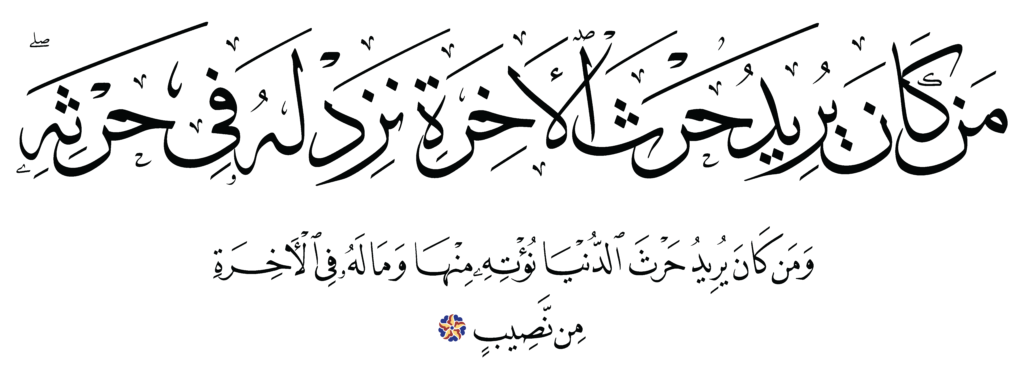 مَن كَانَ يُرِيدُ حَرْثَ ٱلْأَخِرَةِ نَزِدْ لَهُۥ فِى حَرْثِهِۦ ۖ
وَمَن كَانَ يُرِيدُ حَرْثَ ٱلدُّنْيَا نُؤْتِهِۦ مِنْهَا وَمَا لَهُۥ فِى ٱلْأَخِرَةِ
مِن نَّصِيبٍ